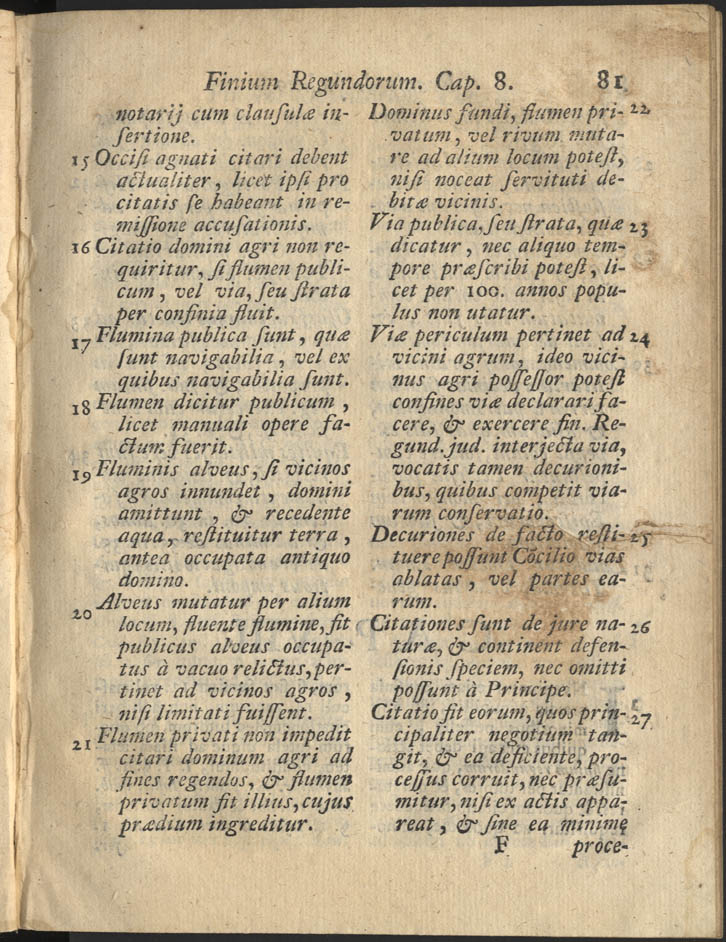 Finium Regundorum. Cap. 8. 81
notarij cum clauſulæ in-
ſertione.
15 Occiſi agnati citari debent
actualiter, licet ipſi pro
citatis ſe habeant in re-
miſſione accuſationis.
16 Citatio domini agri non re-
quiritur, ſi flumen publi-
cum, vel via, ſeu ſtrata
per confinia fluit.
17 Flumina publica ſunt, quæ
ſunt navigabilia, vel ex
quibus navigabilia ſunt.
18 Flumen dicitur publicum,
licet manuali opere fa-
ctum fuerit.
19 Fluminis alveus, ſi vicinos
agros innundet, domini
amittunt, & recedente
aqua, reſtituitur terra,
antea occupata antiquo
domino.
20 Alveus mutatur per alium
locum, fluente flumine, fit
publicus alveus occupa-
tus à vacuo relictus, per-
tinet ad vicinos agros,
niſi limitati fuiſſent.
21 Flumen privati non impedit
citari dominum agri ad
fines regendos, & flumen
privatum fit illius, cujus
prædium ingreditur.
Dominus fundi, flumen pri- 22
vatum, vel rivum muta-
re ad alium locum poteſt,
niſi noceat ſervituti de-
bitæ vicinis.
Via publica, ſeu ſtrata, quæ 23
dicatur, nec aliquo tem-
pore præſcribi poteſt, li-
cet per 100. annos popu-
lus non utatur.
Viæ periculum pertinet ad 24
vicini agrum, ideo vici-
nus agri poſſeſſor poteſt
confines viæ declarari fa-
cere, & exercere fin. Re-
gund. jud. interjecta via,
vocatis tamen decurioni-
bus, quibus competit via-
rum conſervatio.
Decuriones de facto reſti- 25
tuere poſſunt Cõcilio vias
ablatas, vel partes ea-
rum.
Citationes ſunt de jure na- 26
turæ, & continent defen-
ſionis ſpeciem, nec omitti
poſſunt à Principe.
Citatio fit eorum, quos prin- 27
cipaliter negotium tan-
git, & ea deficiente, pro-
ceſſus corruit, nec præſu-
mitur, niſi ex actis appa-
reat, & ſine ea minimę
F proce-